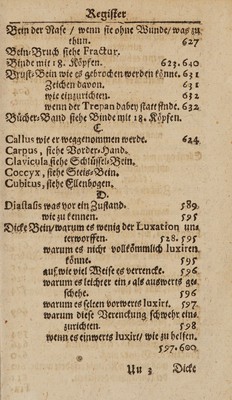 Register
Bein der Nase / wenn sie ohne Wunde / was zu
thun. 627
Bein-Bruch siehe Fractur.
Binde mit 18. Köpfen. 623. 640
Brust-Bein wie es gebrochen werden könne. 631
Zeichen davon. 631
wie einzurichten. 632
wenn der Trepan dabey statt finde. 632
Bücher-Band siehe Binde mit 18. Köpfen.
C.
Callus wie er weggenommen werde. 624
Carpus, siehe Vorder-Hand.
Clavicula siehe Schlüssel-Bein.
Coccyx, siehe Steis-Bein.
Cubitus, siehe Ellenbogen.
D.
Diastasis was vor ein Zustand. 589
wie zu kennen. 595
Dicke Bein / warum es wenig der Luxation un-
terworffen. 528. 595
warum es nicht vollkömmlich luxiren
könne. 595
auf wie viel Weise es verrencke. 596
warum es leichter ein- als auswerts ge-
schehe. 596
warum es selten vorwerts luxirt. 597
warum diese Verenckung schwehr ein-
zurichten. 598
wenn es einwerts luxirt / wie zu helfen.
597. 600
Uu 3 Dicke